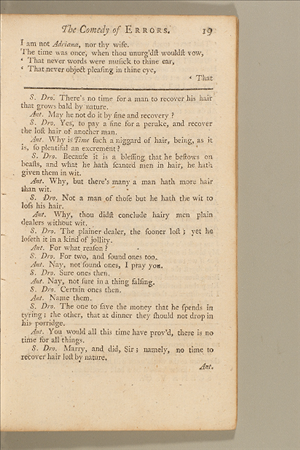 The Comedy of ERRORS. 19
I am not Adriana, nor thy wife.
The time was once, when thou unurg'dſt wouldſt vow,
‘ That never words were muſick to thine ear,
‘ That never object pleaſing in thine eye,
‘ That
S. Dro. There's no time for a man to recover his hair
that grows bald by nature.
Ant. May he not do it by fine and recovery?
S. Dro. Yes, to pay a fine for a peruke, and recover
the loſt hair of another man.
Ant. Why is Time ſuch a niggard of hair, being, as it
is, ſo plentiful an excrement?
S. Dro. Becauſe it is a bleſſing that he beſtows on
beaſts, and what he hath ſcanted men in hair, he hath
given them in wit.
Ant. Why, but there's many a man hath more hair
than wit.
S. Dro. Not a man of thoſe but he hath the wit to
loſe his hair.
Ant. Why, thou didſt conclude hairy men plain
dealers without wit.
S. Dro. The plainer dealer, the ſooner loſt; yet he
loſeth it in a kind of jollity.
Ant. For what reaſon?
S. Dro. For two, and ſound ones too.
Ant. Nay, not ſound ones, I pray you.
S. Dro. Sure ones then.
Ant. Nay, not ſure in a thing falſing.
S. Dro. Certain ones then.
Ant. Name them.
S. Dro. The one to ſave the money that he ſpends in
tyring; the other, that at dinner they ſhould not drop in
his porridge.
Ant. You would all this time have prov'd, there is no
time for all things.
S. Dro. Marry, and did, Sir; namely, no time to
recover hair loſt by nature.
Ant.